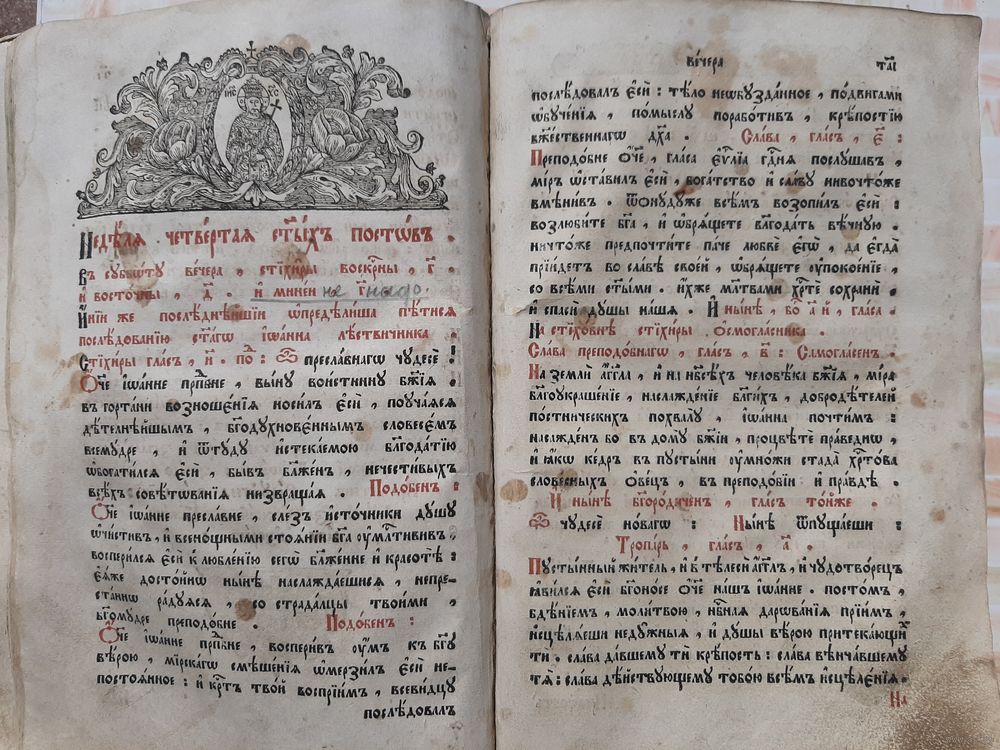 ІИС ХС
Недѣ́лѧ четве́ртаѧ ст҃ы́хъ посто́въ .
Въ сꙋббѡ́тꙋ ве́чера , стїхи̑ры воскрⷭ҇ны , г҃ .
и҆ восто́чны , д҃ . и҆ мине́и не
И҆ні́и же послѣ́днѣйшїи ѡ҆предѣли́ша пѣ́тисѧ
послѣ́дованїю ст҃а́гѡ і҆ѡа́нна лѣ́ствичника .
Стїхи̑ры гла́съ , и҃ . по : Ѽ пресла́внагѡ чꙋдесѐ !
Ѻ҆́ч҃е і҆ѡа́нне прпⷣбне , вы́нꙋ вои́стиннꙋ бж҃їѧ
въ горта́ни возноше́нїѧ носи́лъ є҆сѝ , поꙋча́ѧсѧ
дѣ́телнѣйшымъ , бг҃одꙋхнове́ннымъ словесє́мъ
всемꙋ́дре , и҆ ѿтꙋ́дꙋ и҆стека́емою блгⷣа́тїю
ѡ҆богати́лсѧ є҆сѝ , бы́въ бл҃же́нъ , нечести́выхъ
всѣ́хъ совѣ́тѡванїѧ низвраща́ѧ . Подо́бенъ :
Ѻ҆́ч҃е і҆ѡа́нне пресла́вне , сле́зъ и҆сто́чники дꙋ́шꙋ
ѡ҆чи́стивъ , и҆ всено́щными стоѧ́нїи бг҃а ᲂу҆мл҃тиви́въ ,
воспери́лсѧ є҆сѝ к люблє́нїю сегѡ̀ бл҃же́нне и҆ красотѣ̀ :
є҆ѧ́же досто́йнѡ ны́нѣ наслажда́ешисѧ , непре-
ста́ннѡ ра́дꙋѧсѧ , со страда́лцы твои́ми ,
бг҃омꙋ́дре преподо́бне . Подо́бенъ :
Ѻ҆́ч҃е і҆ѡа́нне прпⷣбне , воспери́въ ᲂу҆́мъ къ бг҃ꙋ
вѣ́рою , мі́рскагѡ смѣше́нїѧ ѡ҆мерзи́лъ є҆сѝ не-
постоѧ́нное : и҆ крⷭ҇тъ тво́й воспрїи́мъ , всеви́дцꙋ
послѣ́довалъ
ве́чера тл҃і
послѣ́довалъ є҆сѝ : тѣ́ло неѡбꙋзда́нное , по́двигами
ѡ҆бꙋче́нїѧ , по́мыслꙋ порабо́тивъ , крѣ́постїю
бж҃е́ственнагѡ дх҃а . Сла́ва , гла́съ , є҃ :
Преподо́бне ѻ҆́ч҃е , гла́са є҆ѵⷢ҇лїа гдⷭ҇нѧ послꙋ́шавъ ,
мі́ръ ѡ҆ста́вилъ є҆сѝ , бога́тство и҆ сла́вꙋ нивочто́же
вмѣни́въ . Ѿню́дꙋже всѣ́мъ возопи́лъ є҆сѝ :
возлюби́те бг҃а , и҆ ѡ҆брѧ́щете бл҃года́ть вѣ́чнꙋю .
ничто́же предпочти́те па́че любвѐ є҆гѡ̀ , да є҆гда̀
прїи́детъ во сла́вѣ свое́й , ѡ҆брѧ́щете ᲂу҆покое́нїе ,
со всѣ́ми ст҃ы́ми . и҆́хже мл҃твами хрⷭ҇тѐ сохранѝ
и҆ спасѝ дꙋ́шы на́шѧ . И҆ ны́нѣ , бо҃ а҃ й , гла́са .
На стїхо́внѣ стїхи̑ры Ѻ҆смогла́сника .
Сла́ва преподо́бнагѡ , гла́съ , в҃ : Самогла́сенъ .
На землѝ а҆́гг҃ла , и҆ на нб҃сѣ́хъ человѣ́ка бж҃їѧ , мі́ра
бл҃гоꙋкраше́нїе , наслажде́нїе бл҃ги́хъ , добродѣ́телей
по́стническихъ похвалꙋ̀ , і҆ѡа́нна почти́мъ :
насажде́нъ бо въ домꙋ̀ бж҃їи , процвѣтѐ пра́веднѡ ,
и҆ ꙗ҆́кѡ ке́дръ въ пꙋсты́ни ᲂу҆мно́жи стада̀ хрⷭ҇то́ва
слове́сныхъ ѻ҆ве́цъ , въ преподо́бїи и҆ пра́вдѣ .
И҆ ны́нѣ бг҃оро́диченъ , гла́съ то́йже .
Ѽ чꙋдесѐ но́вагѡ : Ны́нѣ ѿпꙋща́еши :
Тропа́рь , гла́съ , а҃ .
Пꙋсты́нный жи́тель , и҆ в тѣлесѝ а҆́гг҃лъ , и҆ чꙋдотво́рецъ
ꙗ҆ви́лсѧ є҆сѝ бг҃оно́се ѻ҆́ч҃е на́шъ і҆ѡа́нне . посто́мъ ,
бдѣ́нїемъ , моли́твою , нбⷭ҇наѧ дарѡва̑нїѧ прїи́мъ ,
и҆сцѣлѧ́еши недꙋ́жныѧ , и҆ дꙋ́шы вѣ́рою притека́ющих
ти . сла́ва да́вшемꙋ тѝ крѣ́пость : сла́ва вѣнча́вшемꙋ
тѧ̀ : сла́ва дѣ́йствꙋющемꙋ тобо́ю всѣ́мъ и҆сцѣле́нїѧ .
На